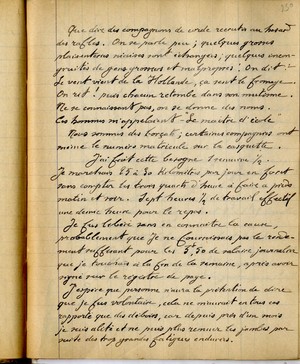 Que dire des compagnons de corde recrutés au hasard
des rafles. On se parle peu ; quelques grosses
plaisanteries niaises sont échangées ; quelques incon-
gruités de gens grossiers et malpropres ! On dit :
le vent vient de la Hollande, ça sent le fromage.
On rit ! puis chacun retombe dans son mutisme.
Ne se connaissant pas, on se donne des noms.
Les hommes m'appelaient "Le maître d'école"
Nous sommes des forçats ; certains compagnons ont
même le numéro matricule sur la casquette.
J'ai fait cette besogne 1 semaine ½.
Je marchais 25 à 30 kilomètres par jour en forêt
sans compter les trois quarts d'heure à faire à pieds
matin et soir. Sept heures ½ de travail effectif
une demie heure pour le repos.
Je fus libéré sans en connaître la cause,
probablement que je ne fournissais pas le rende-
ment suffisant pour les 5,50 de salaire journalier
que je touchais à la fin de la semaine, après avoir
signé sur le registre de paye.
J'espère que personne n'aura la prétention de dire
que je fus volontaire, cela ne m'aurait en tous cas
rapporté que des déboires, car depuis près d'un mois
je suis alité et ne puis plus remuer les jambes par
suite des trop grandes fatigues endurées.